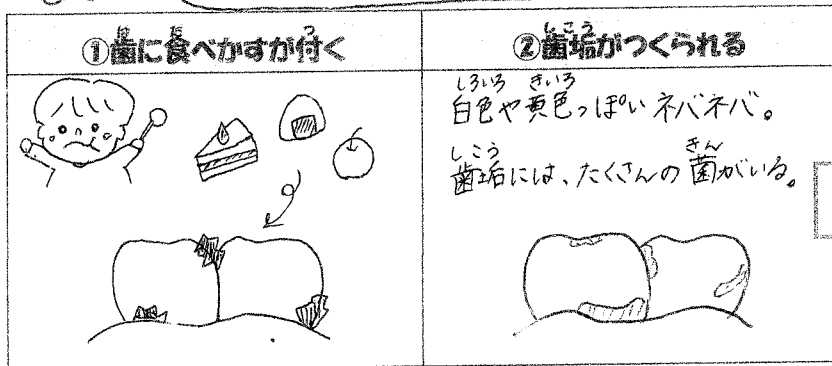 ①歯に食べかすが付く
②歯垢がつくられる
白色や黄色っぽいネバネバ。
歯垢には、たくさんの菌がいる。